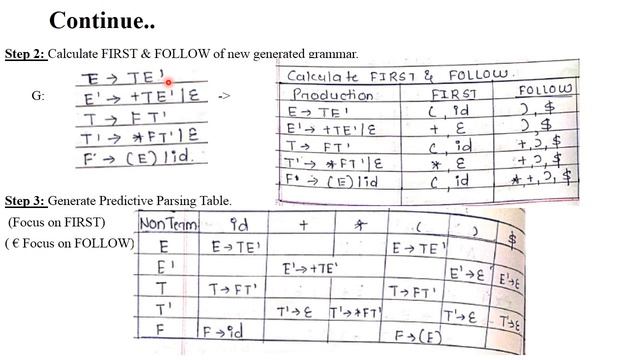 Continue..
Step 2: Calculate FIRST & FOLLOW of new generated grammar.
G:
E → TE'
E' → +TE'|ε
T → FT'
T' → *FT'|ε
F → (E)|id.
->
Calculate FIRST & FOLLOW.
Production FIRST FOLLOW
E → TE' (, id ), $
E' → +TE'|ε +, ε ), $
T → FT' (, id +, ), $
T' → *FT'|ε * ε +, ), $
F → (E)|id (, id *, +, ), $
Step 3: Generate Predictive Parsing Table.
(Focus on FIRST)
( € Focus on FOLLOW)
Non Team id + * ( ) $
E E→TE' E→TE'
E' E'→+TE' E'→ε E'→ε
T T→FT' T→FT'
T' T'→ε T'→*FT' T'→ε T'→ε
F F→id F→(E)